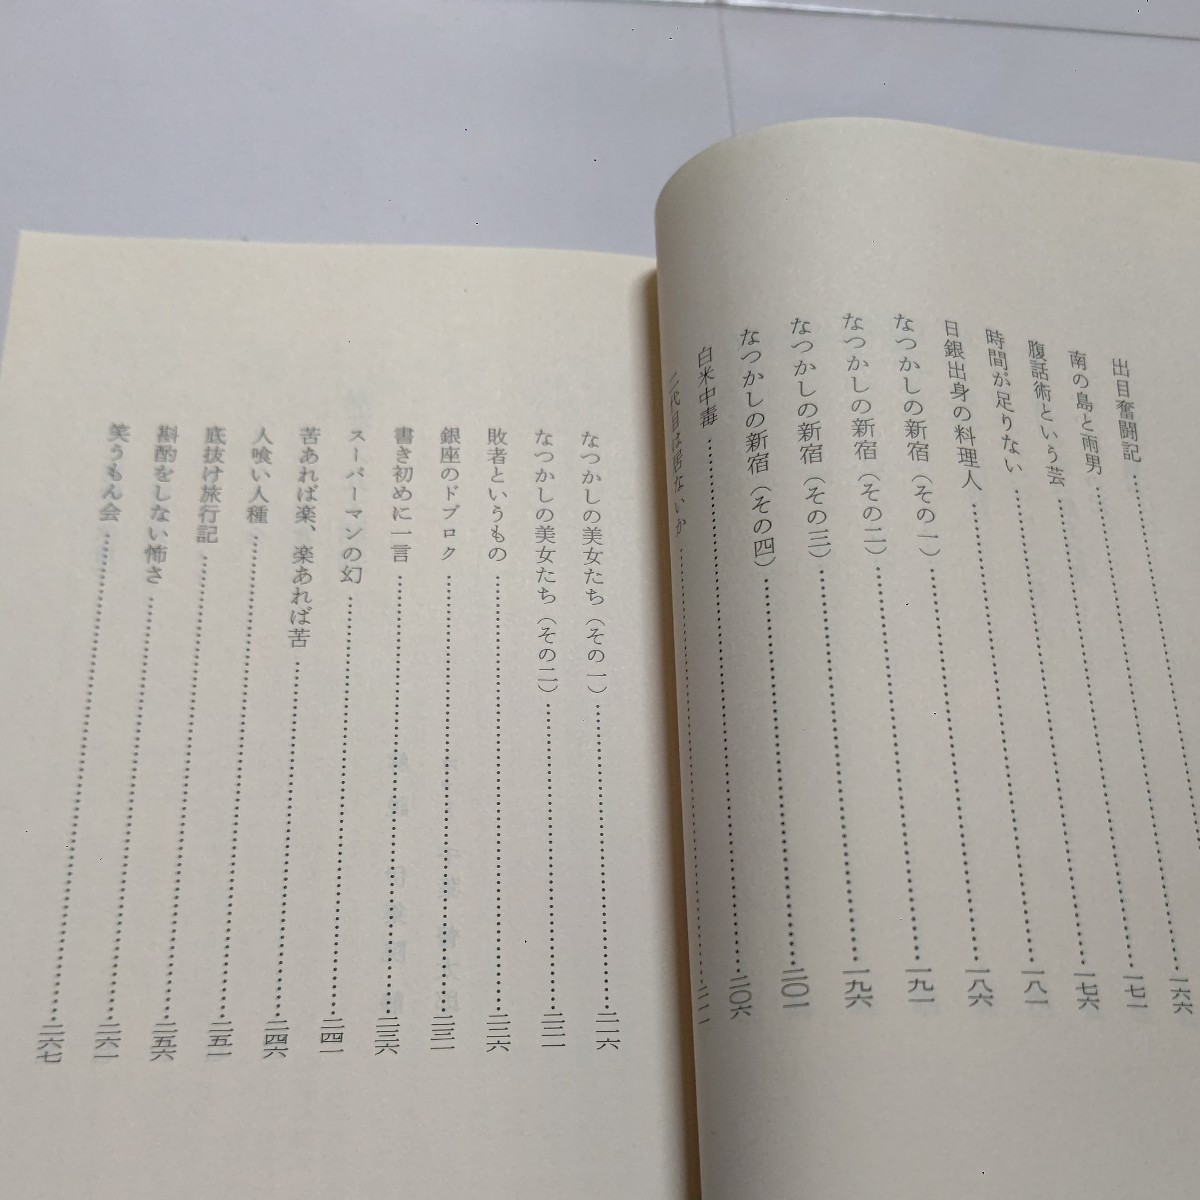 出目奮闘記
南の島と雨男……一六六
腹話術という芸……一七一
時間が足りない……一七六
日銀出身の料理人……一八一
なつかしの新宿（その一）……一八六
なつかしの新宿（その二）……一九一
なつかしの新宿（その三）……一九六
なつかしの新宿（その四）……二〇一
白米中毒……二〇六
二代目は居ないか……二一一
なつかしの美女たち（その一）……二一六
なつかしの美女たち（その二）……二二一
敗者というもの……二二六
銀座のドブロク……二三一
書き初めに一言……二三六
スーパーマンの幻……二四一
苦あれば楽、楽あれば苦……二四六
人喰い人種……二五一
底抜け旅行記……二五六
斟酌をしない怖さ……二六一
笑うもん会……二六七